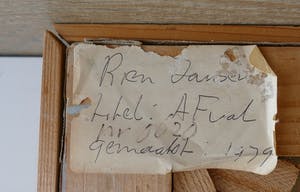 Rien Jansen
titel: AFval
nr 3020
gemaakt: 1979